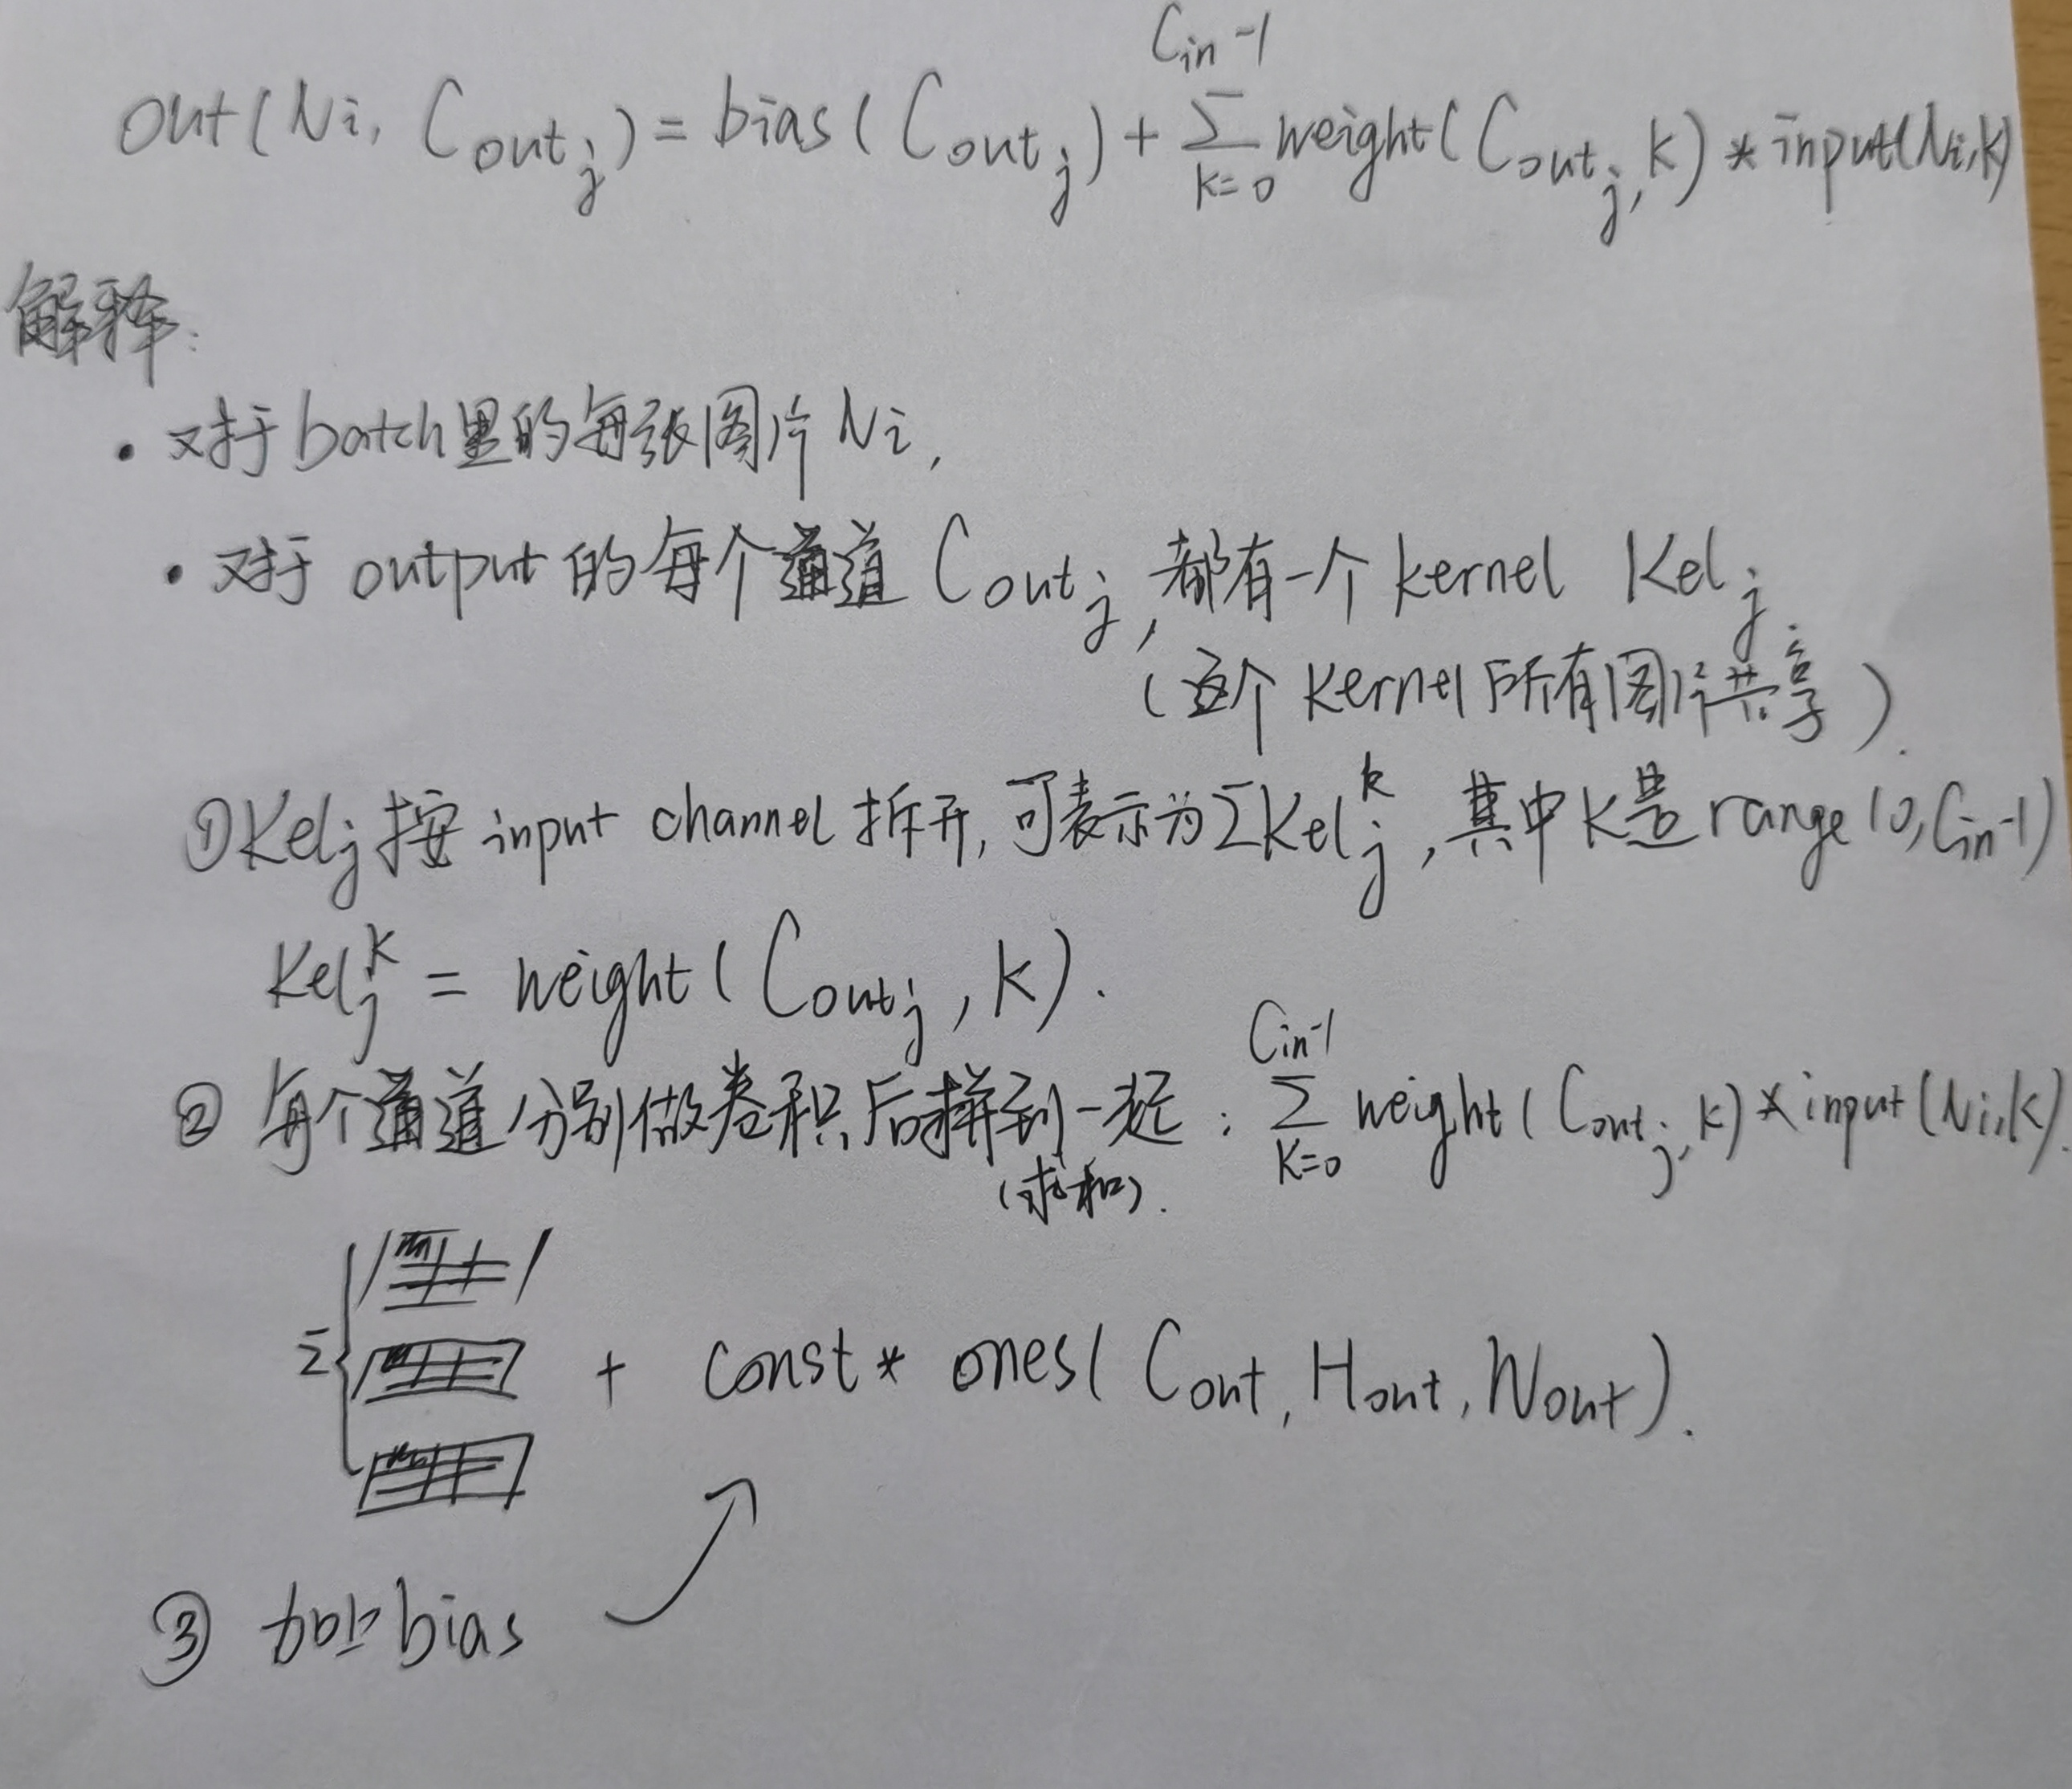 out(Ni, Cout_j) = bias(Cout_j) + Σ_{k=0}^{Cin-1} weight(Cout_j, k) * input(Ni,k)
解释:
· 对于batch里的每张图片Ni,
· 对于output的每个通道Cout_j, 都有一个kernel Kel_j.
(这个kernel所有图片共享).
①Kel_j按input channel拆开,可表示为ΣKel_j^k,其中k是range(0,Cin-1)
Kel_j^k = weight(Cout_j, k).
② 每个通道分别做卷积后拼到一起: Σ_{k=0}^{Cin-1} weight(Cout_j, k) * input(Ni,k).
(求和).
Σ{ + const * ones(Cout, Hout, Wout).
③ 加上bias